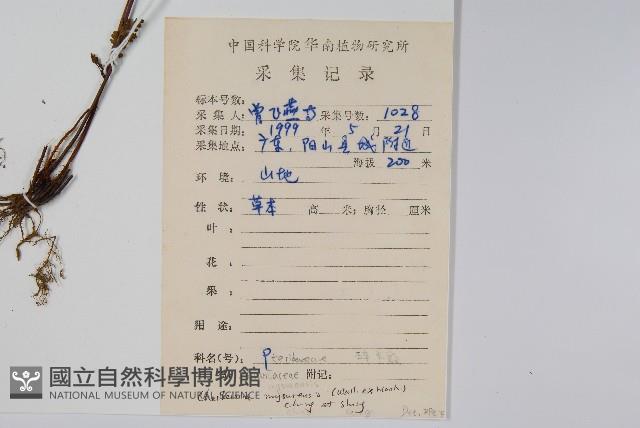 中国科学院华南植物研究所
采集记录
标本号数:
采集人: 曾飞燕 采集号数: 1028
采集日期: 1999 年 5 月 21 日
采集地点: 广东,阳山县城附近
海拔 200 米
环境: 山地
性状: 草本 高 米; 胸径 厘米
叶:
花:
果:
用途:
科名(号):
附记:
mysurensis (Wall. ex Hook)
Ching et Shing
國立自然科學博物館
NATIONAL MUSEUM OF NATURAL SCIENCE